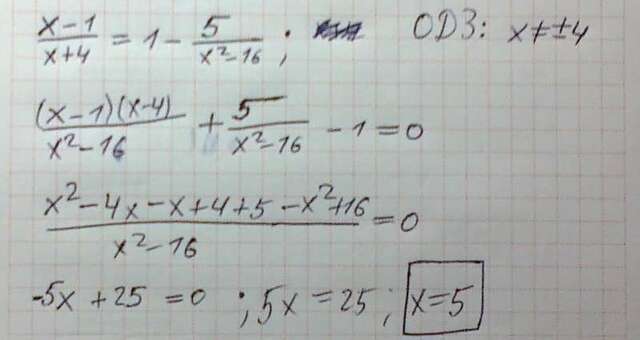 (x-1)/(x+4) = 1 - 5/(x²-16) ; ОДЗ: x≠±4
(x-1)(x-4)/(x²-16) + 5/(x²-16) - 1 = 0
(x²-4x-x+4+5-x²+16)/(x²-16) = 0
-5x+25=0 ; 5x=25 ; x=5